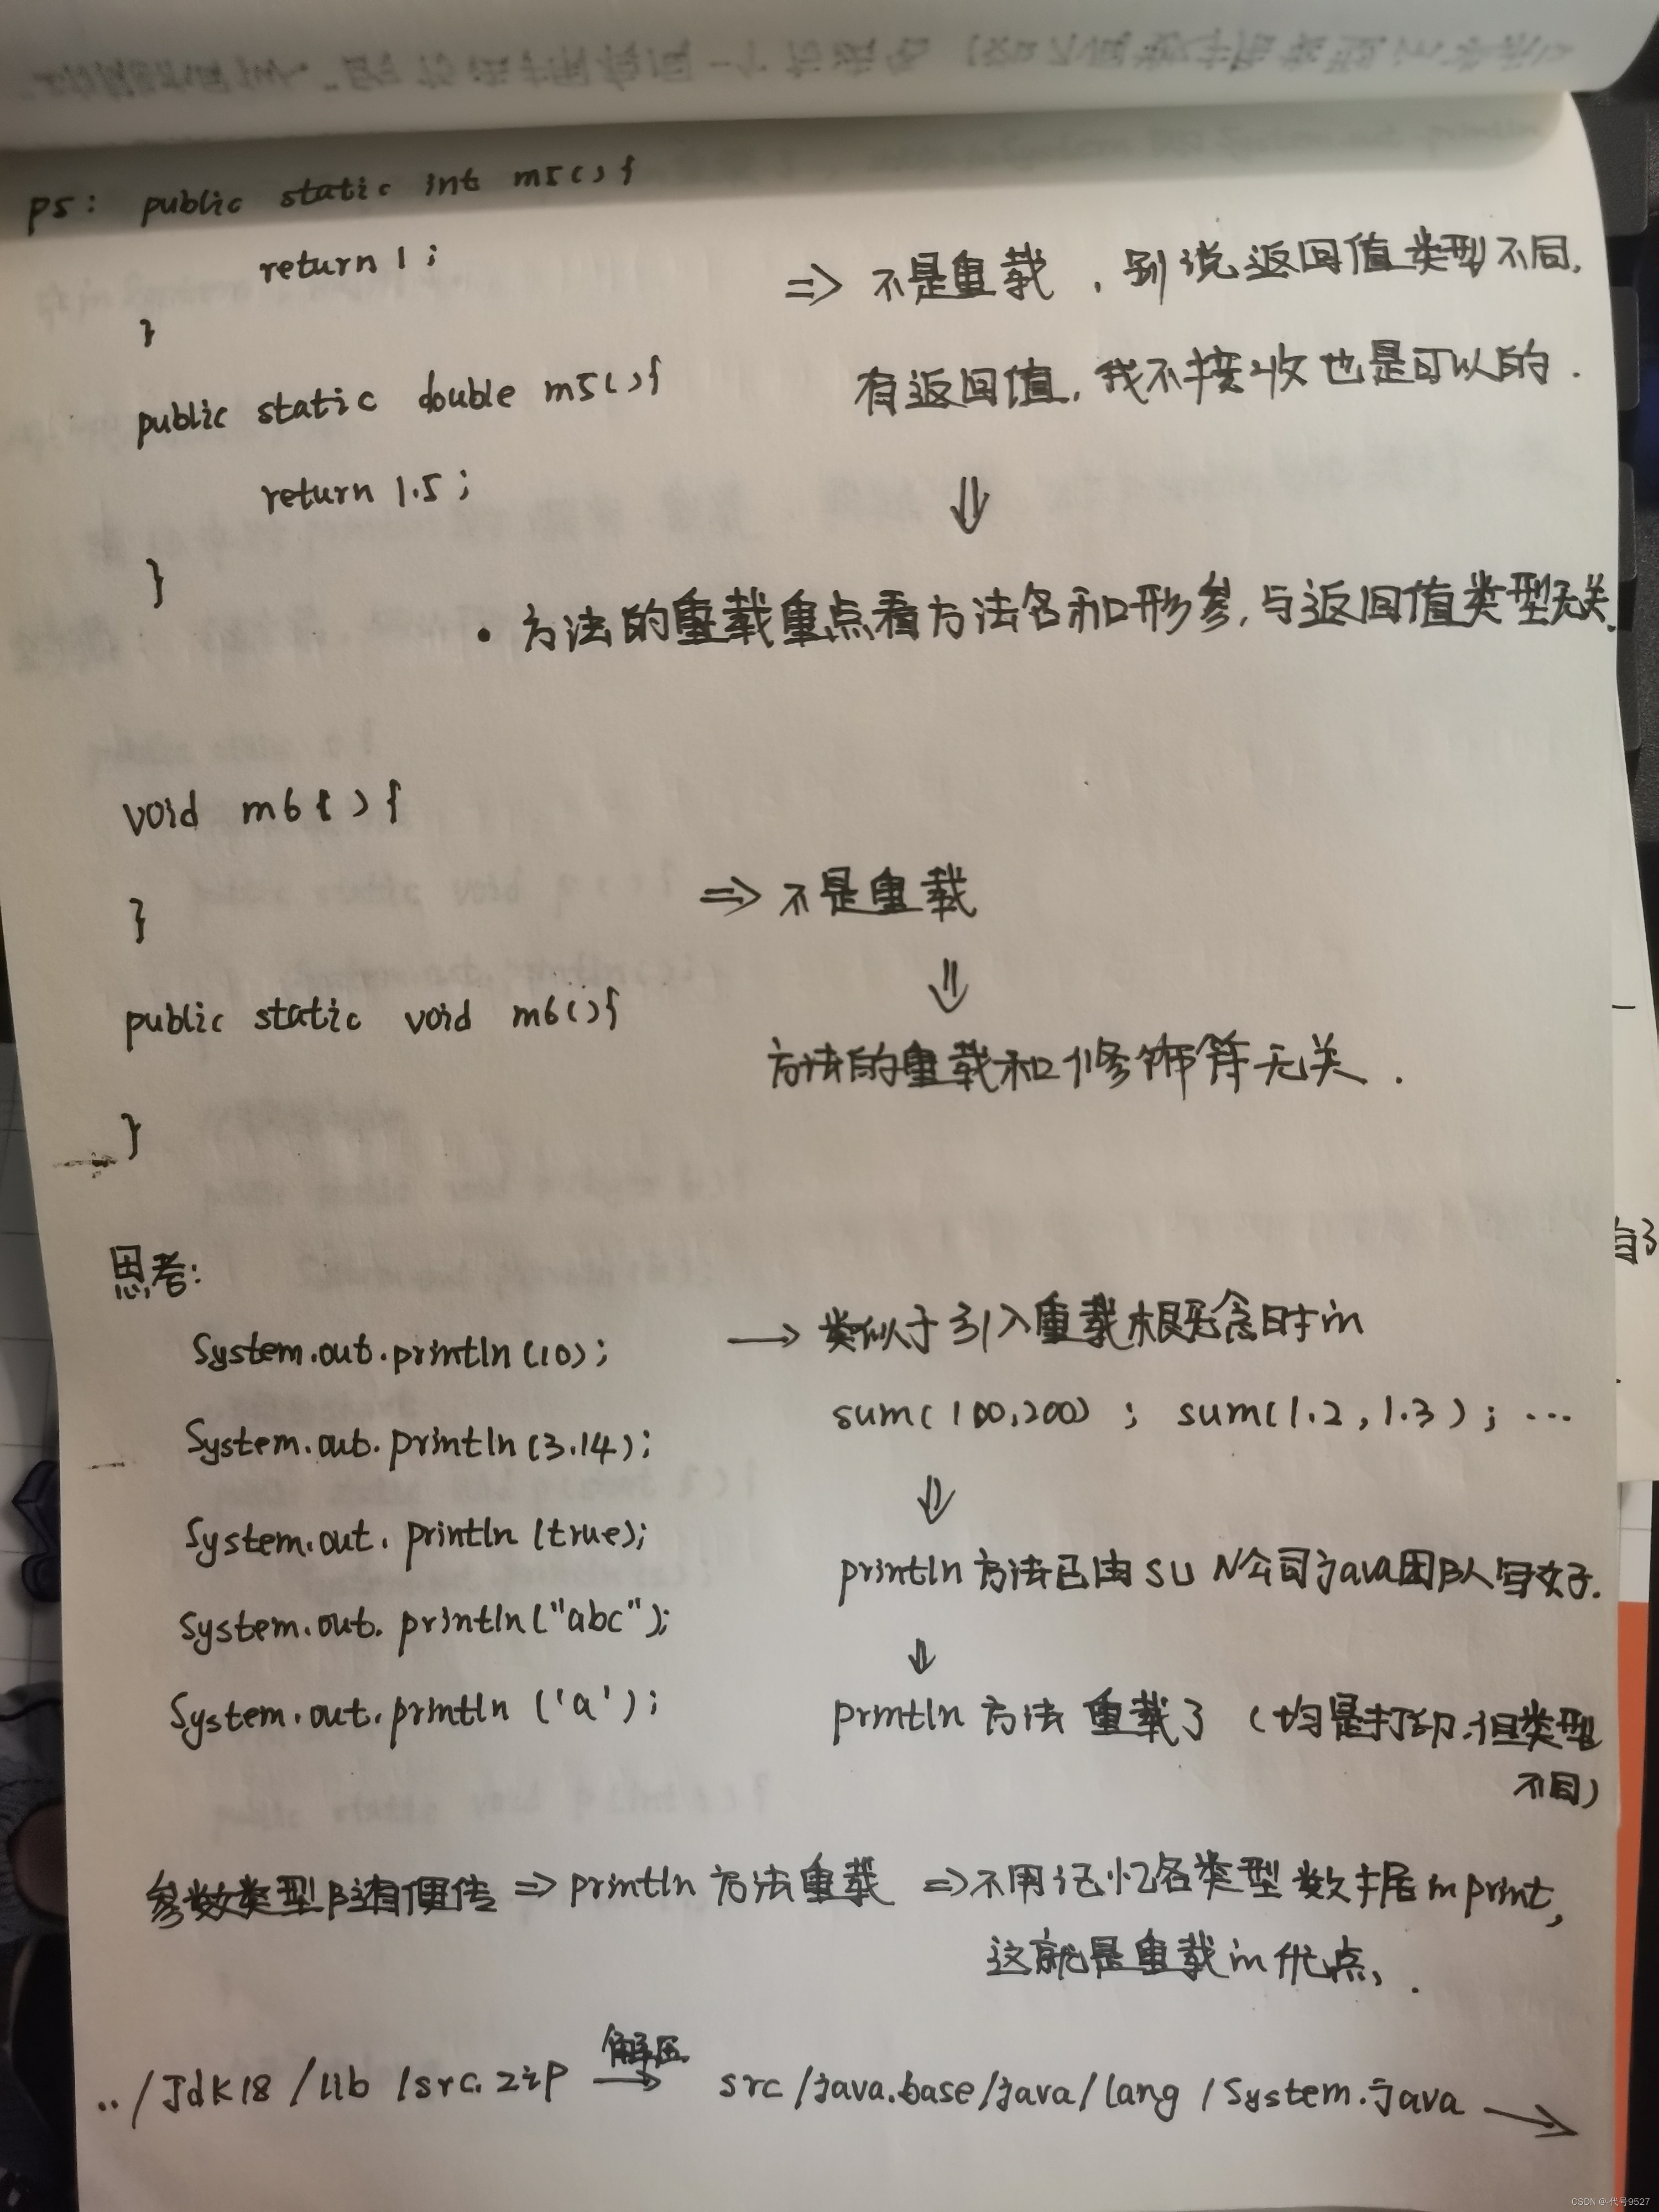 PS: public static int m5(){
return 1;
}
=> 不是重载，别说返回值类型不同，
public static double m5(){
有返回值，我不接收也是可以的.
return 1.5;
}
· 方法的重载重点看方法名和形参，与返回值类型无关.
void m6(){
}
=> 不是重载
public static void m6(){
方法的重载和修饰符无关.
}
思考:
System.out.println(10);
→ 类似于引入重载概念时in
sum(100,200); sum(1.2,1.3); ...
System.out.println(3.14);
System.out.println(true);
println方法已由SUN公司java团队写好.
System.out.println("abc");
System.out.println('a');
println方法重载了(均是打印,但类型
不同)
参数类型随便传 => println方法重载 => 不用记忆各类型数据in print,
这就是重载in优点.
../Jdk18/lib/src.zip 解压→ src/java.base/java/lang/System.java →
CSDN @代号9527